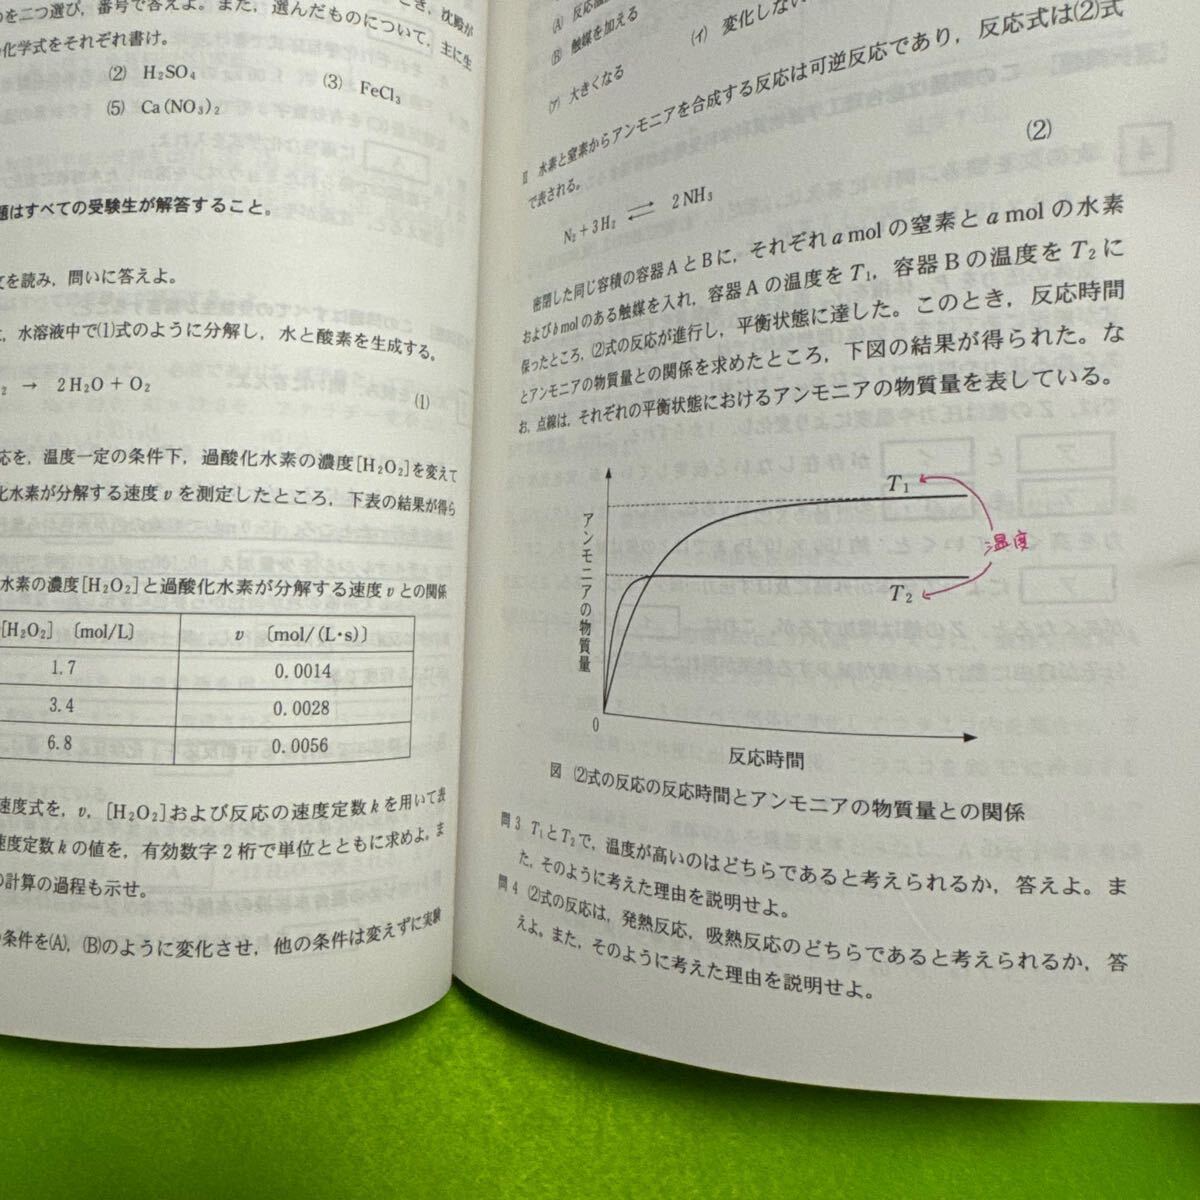 のを二つ選び，番号で答えよ。また，選んだものについて，主に生
の化学式をそれぞれ書け。
(2) H₂SO₄ (3) FeCl₃
(5) Ca(NO₃)₂
題はすべての受験生が解答すること。
文を読み，問いに答えよ。
水溶液中で(1)式のように分解し，水と酸素を生成する。
₂ → 2H₂O + O₂ (1)
応を，温度一定の条件下，過酸化水素の濃度[H₂O₂]を変えて
化水素が分解する速度 v を測定したところ，下表の結果が得ら
水素の濃度[H₂O₂]と過酸化水素が分解する速度 v との関係
[H₂O₂] 〔mol/L〕 v 〔mol/(L・s)〕
1.7 0.0014
3.4 0.0028
6.8 0.0056
速度式を，v，[H₂O₂]および反応の速度定数 k を用いて表
速度定数 k の値を，有効数字 2 桁で単位とともに求めよ。ま
の計算の過程も示せ。
の条件を(A)，(B)のように変化させ，他の条件は変えずに実験
(A) 反応温
(B) 触媒を加える
(ア) 大きくなる (イ) 変化しない
Ⅱ 水素と窒素からアンモニアを合成する反応は可逆反応であり，反応式は(2)式
で表される。
N₂ + 3H₂ ⇄ 2NH₃ (2)
密閉した同じ容積の容器 A と B に，それぞれ a mol の窒素と a mol の水素
および b mol のある触媒を入れ，容器 A の温度を T₁，容器 B の温度を T₂ に
保ったところ，(2)式の反応が進行し，平衡状態に達した。このとき，反応時間
とアンモニアの物質量との関係を求めたところ，下図の結果が得られた。な
お，点線は，それぞれの平衡状態におけるアンモニアの物質量を表している。
アンモニアの物質量
T₁
温度
T₂
0
反応時間
図 (2)式の反応の反応時間とアンモニアの物質量との関係
問 3 T₁ と T₂ で，温度が高いのはどちらであると考えられるか，答えよ。ま
た，そのように考えた理由を説明せよ。
問 4 (2)式の反応は，発熱反応，吸熱反応のどちらであると考えられるか，答
えよ。また，そのように考えた理由を説明せよ。